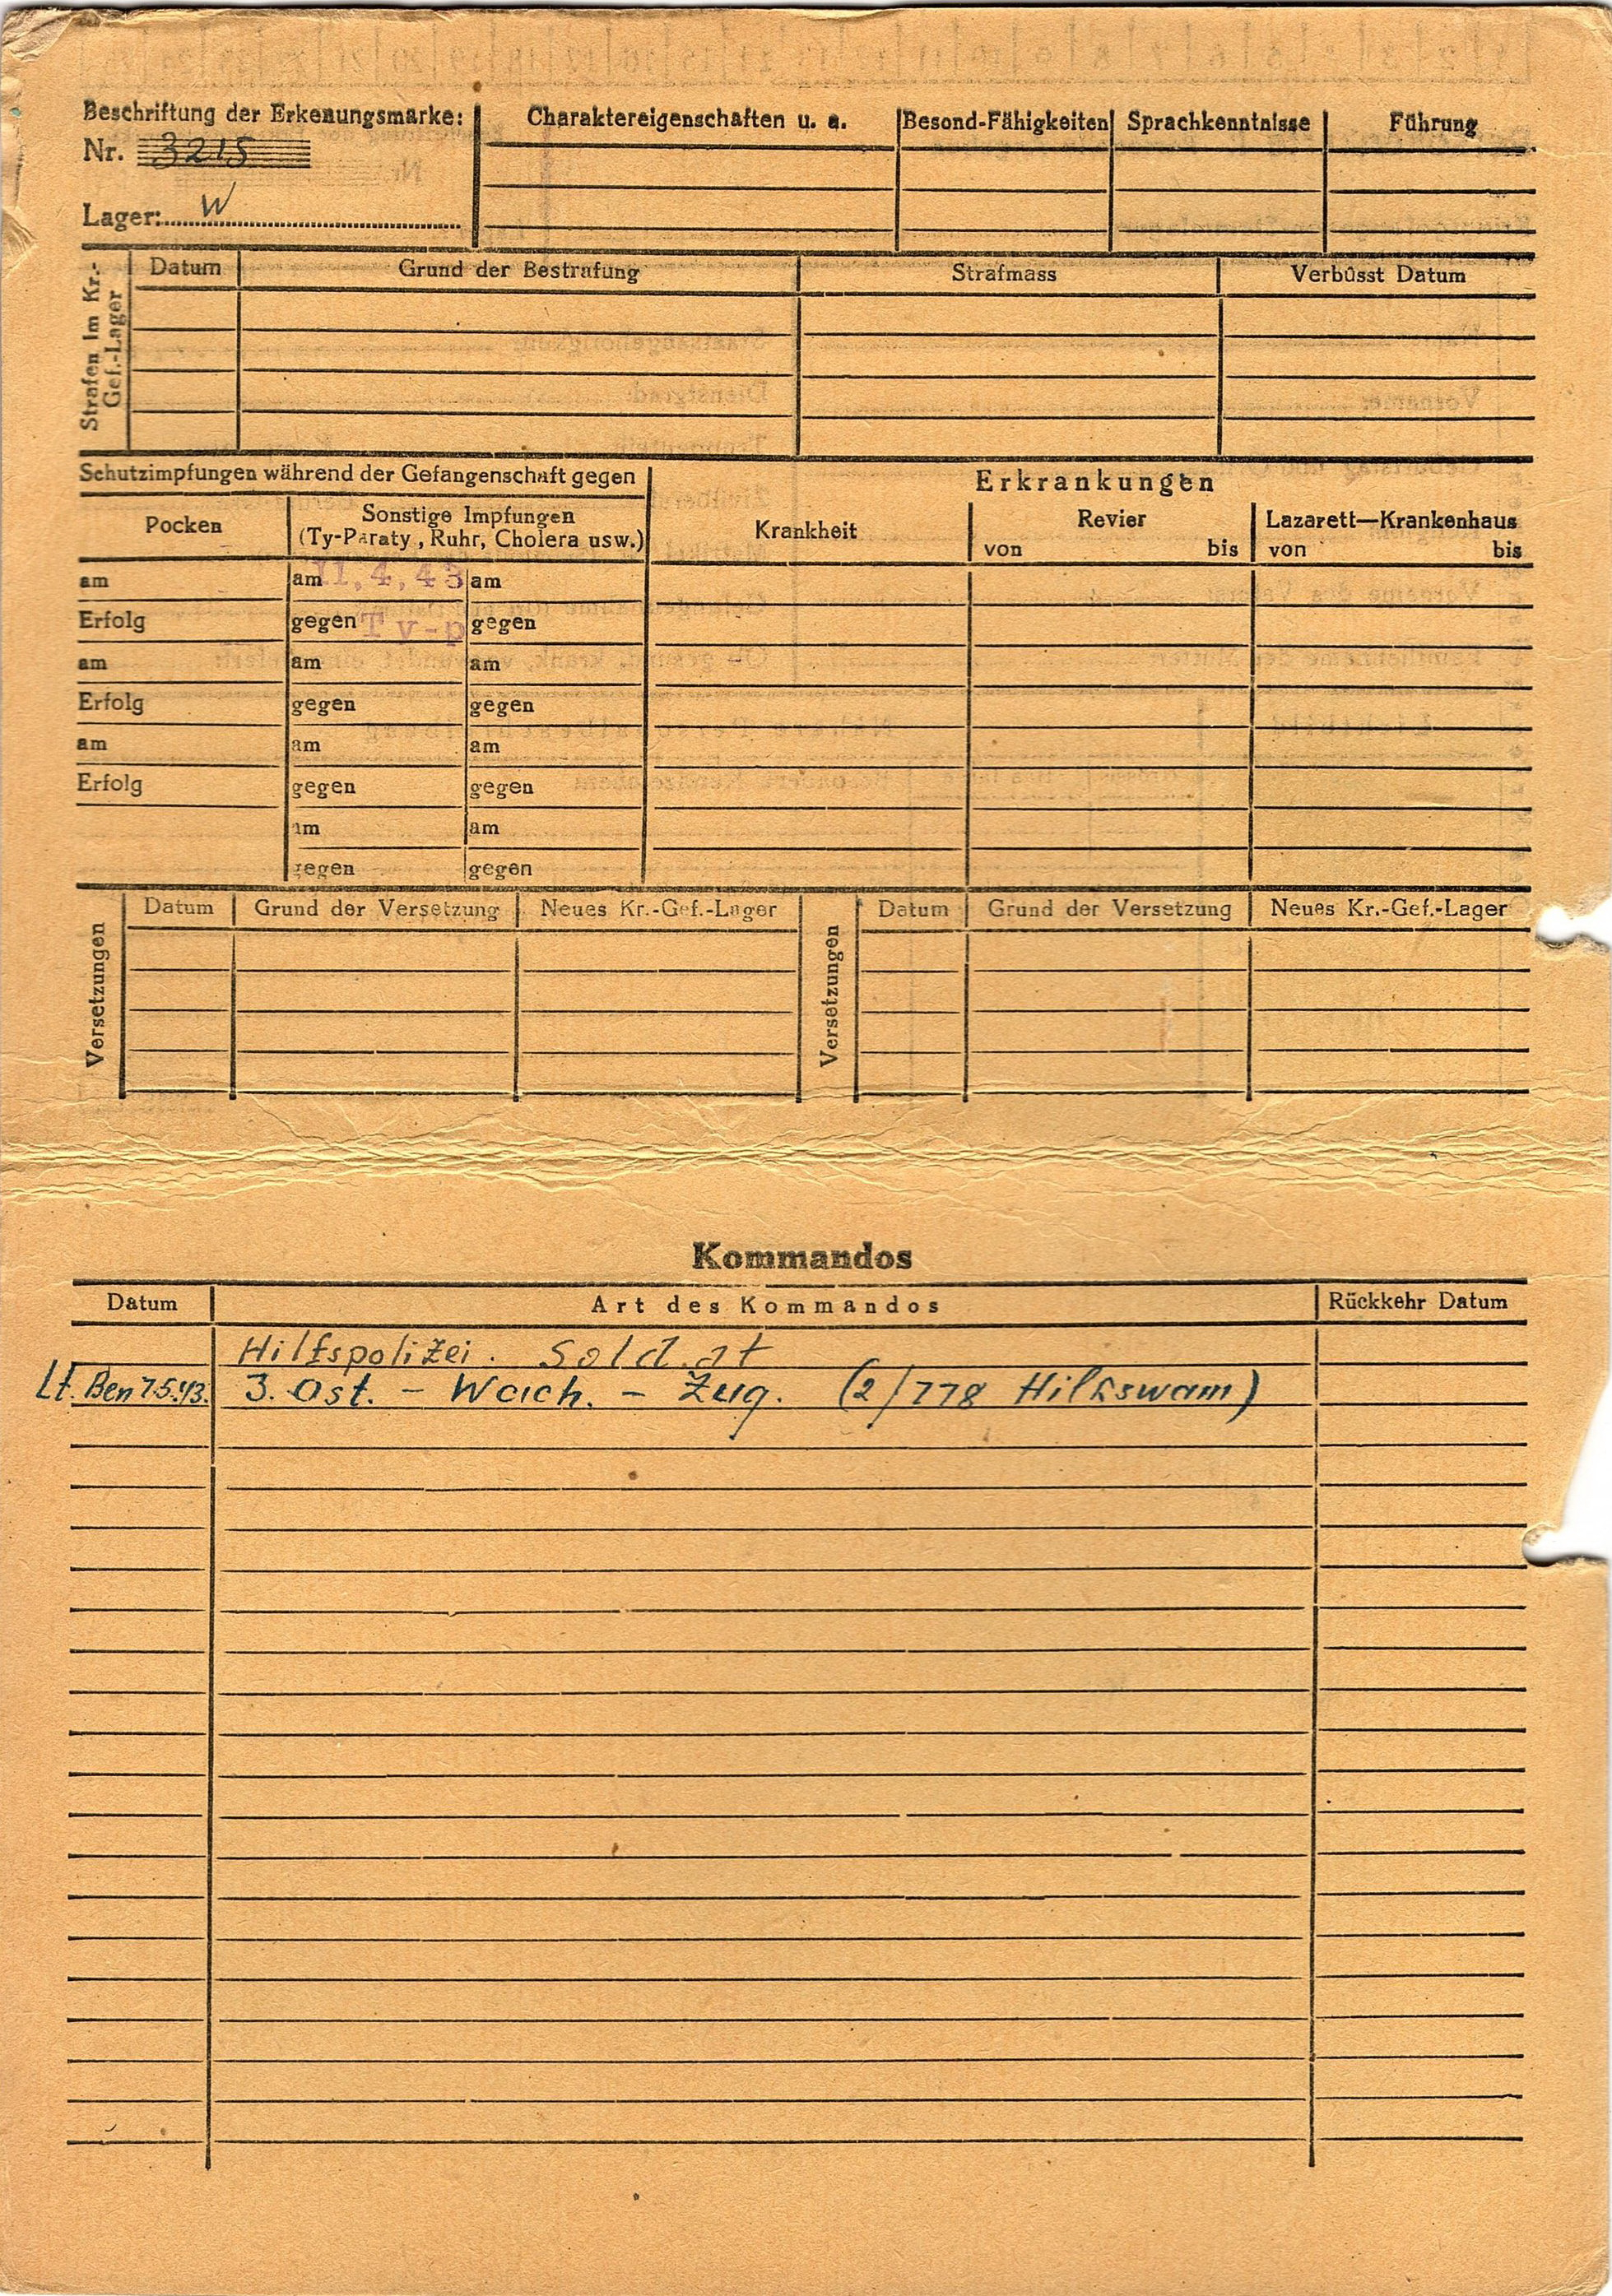 Beschriftung der Erkenungsmarke:
Nr. 3215
Lager: W
Charaktereigenschaften u. a.
Besond-Fähigkeiten
Sprachkenntnisse
Führung
Strafen im Kr.-
Gef.-Lager
Datum
Grund der Bestrafung
Strafmass
Verbüsst Datum
Schutzimpfungen während der Gefangenschaft gegen
Pocken
Sonstige Impfungen
(Ty-Paraty, Ruhr, Cholera usw.)
Erkrankungen
Krankheit
Revier
von bis
Lazarett—Krankenhaus
von bis
am am 11.4.43 am
Erfolg gegen Ty-p gegen
am am am
Erfolg gegen gegen
am am am
Erfolg gegen gegen
am am
gegen gegen
Versetzungen
Datum Grund der Versetzung Neues Kr.-Gef.-Lager
Versetzungen
Datum Grund der Versetzung Neues Kr.-Gef.-Lager
Kommandos
Datum Art des Kommandos Rückkehr Datum
Hilfspolizei. Soldat
Lt. Ben 7.5.43. 3. Ost. - Wach. - Zug. (2/778